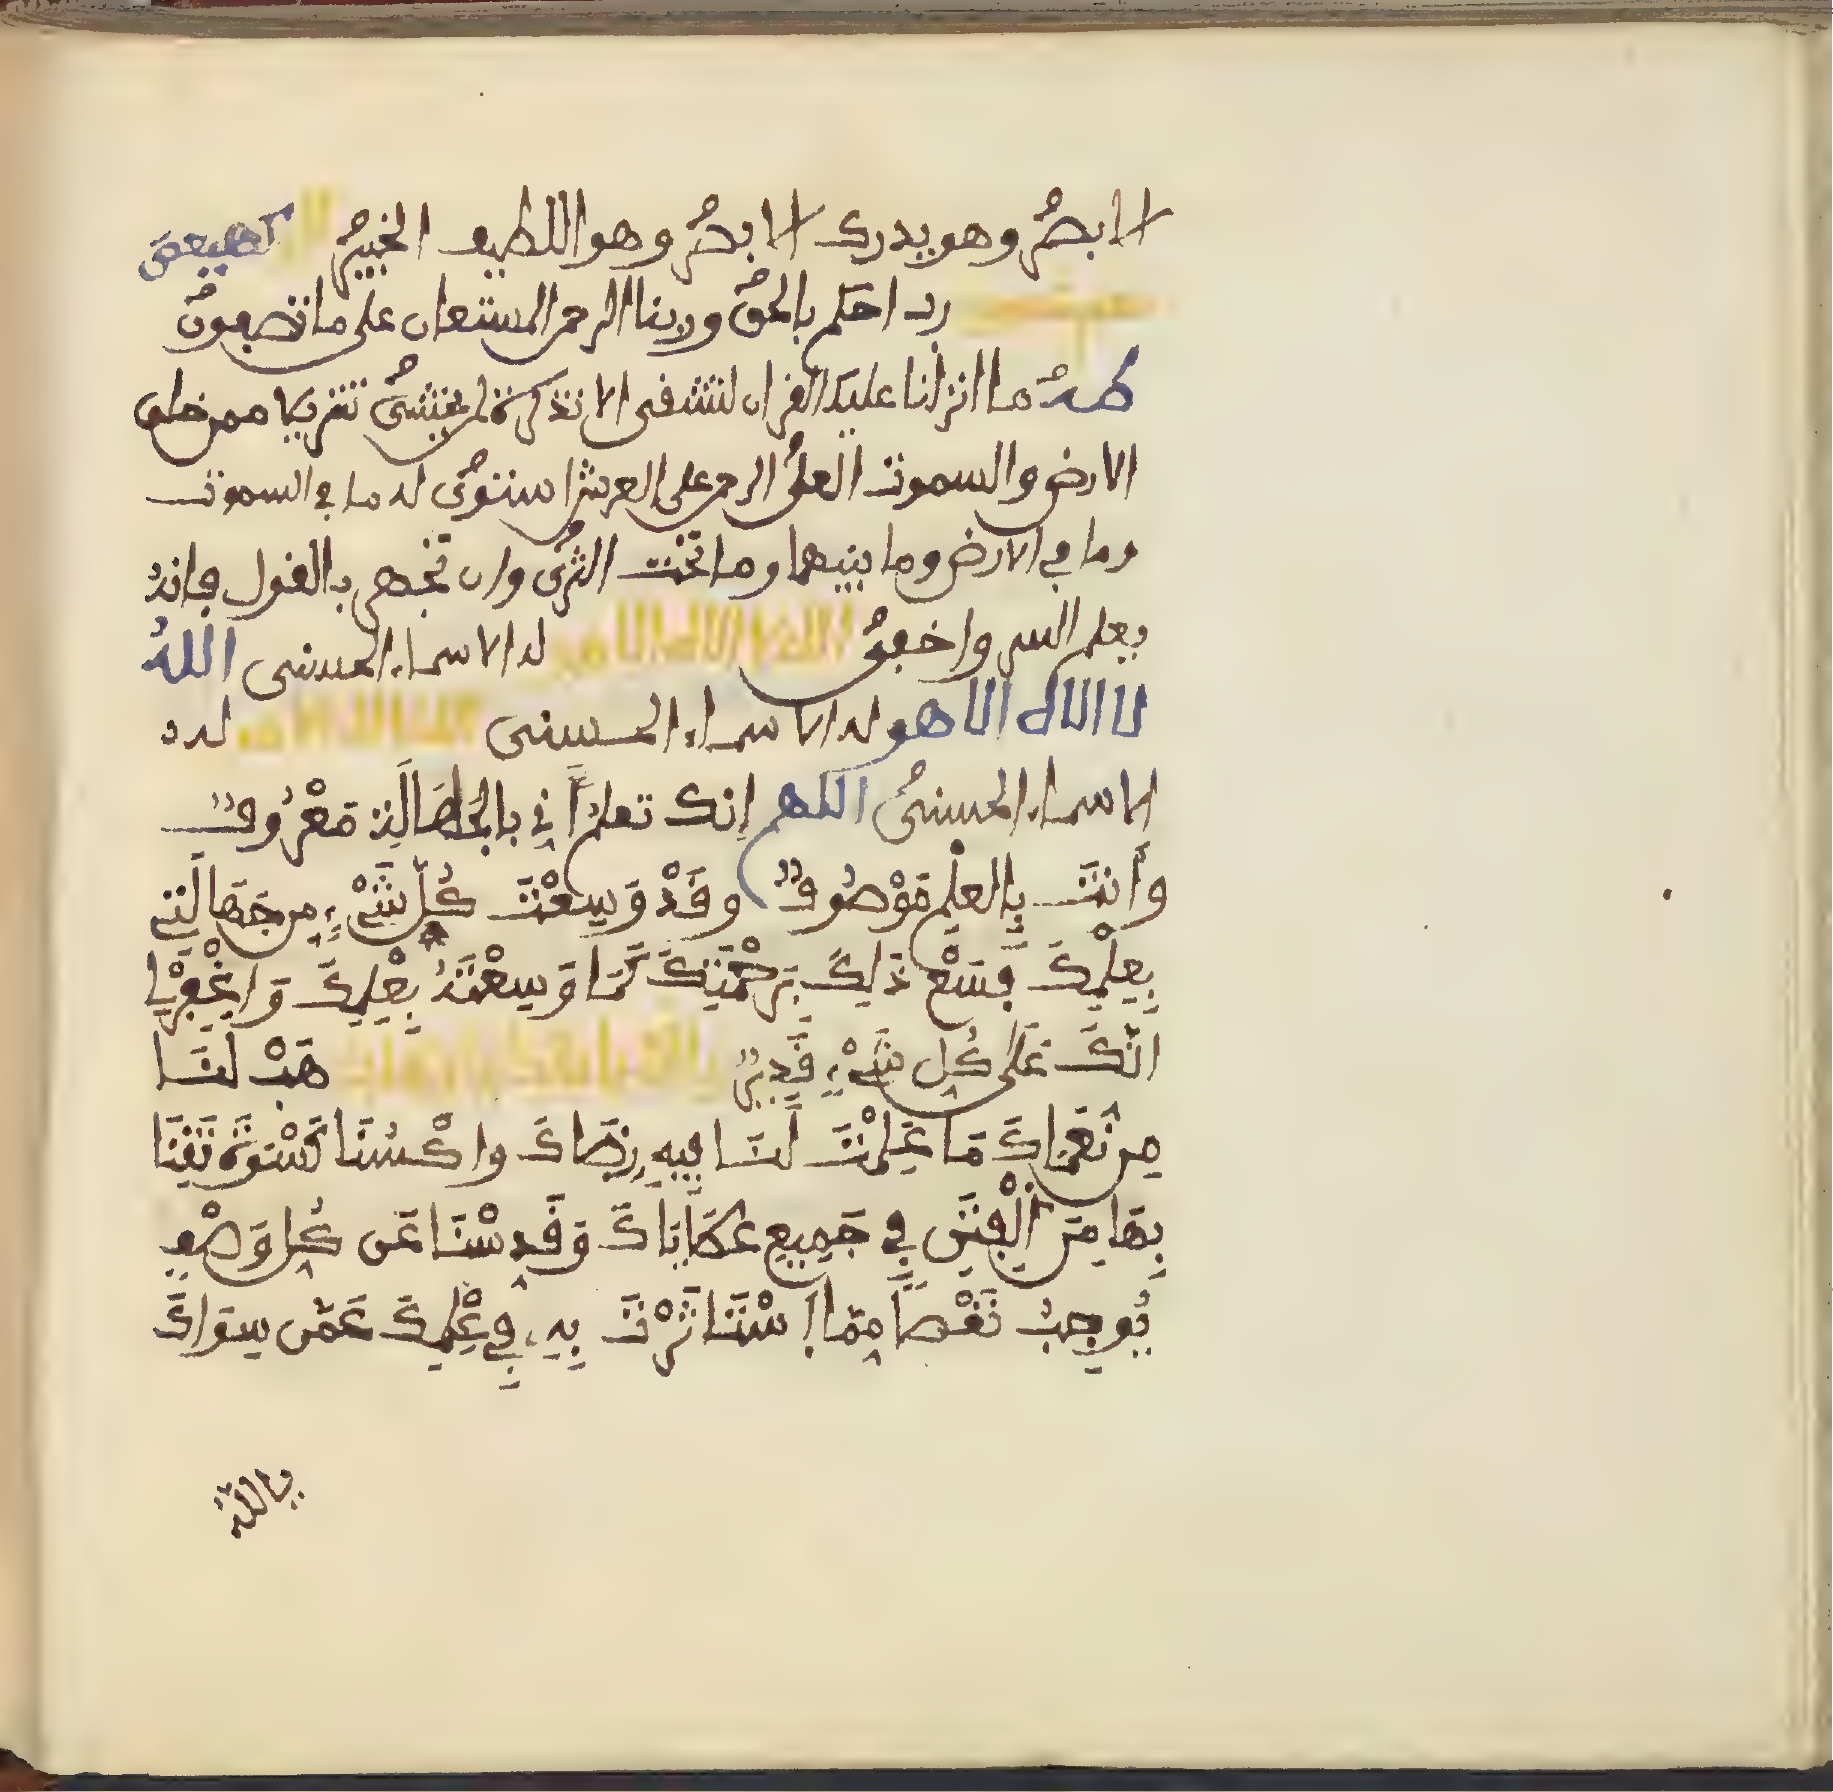 الابصر وهو يدرك الابصر وهو اللطيف الخبير كهيعص
رب احكم بالحق وربنا الرحمن المستعان على ما تصفون
طه ما انزلنا عليك القران لتشقى الا تذكرة لمن يخشى تنزيلا ممن خلق
الارض والسموت العلى الرحمن على العرش استوى له ما في السموت
وما في الارض وما بينهما وما تحت الثرى وان تجهر بالقول فإنه
يعلم السر واخفى الله لا اله الا هو له الاسماء الحسنى الله
لا اله الا هو له الاسماء الحسنى الله لا اله الا هو له
الاسماء الحسنى اللهم إنك تعلم أني بالجَهَالَةِ مَعْرُوفٌ
وأَنتَ بِالعلْمِ مَوْصُوفٌ وقَدْ وَسِعْتَ كُلَّ شَيْءٍ مِن جَهَالَتِي
بِعِلْمِكَ فَسَعْ ذَلِكَ بِرَحْمَتِكَ كَمَا وَسِعْتَهُ بِعِلْمِكَ وَاغْفِرْ لِي
انَّكَ عَلَى كُلِ شَيْءٍ قَدِيرٌ يا الله يا مالك يا وهاب هَبْ لنَا
مِن نُعْمَاكَ مَا عَلِمْتَ لَنَا فِيهِ رِضَاكَ واكْسُنَا كَسْوَةً تَقِنَا
بِهَا مِنَ الْفِتَنِ فِي جَمِيعِ عَطَايَاكَ وَقَدِّسْنَا عَن كُلِ وَصْفٍ
يُوجِبُ نَقْصاً مِمَّا اسْتَاثَرْتَ بِهِ فِي عِلْمِكَ عَمَّن سِوَاكَ
يا الله